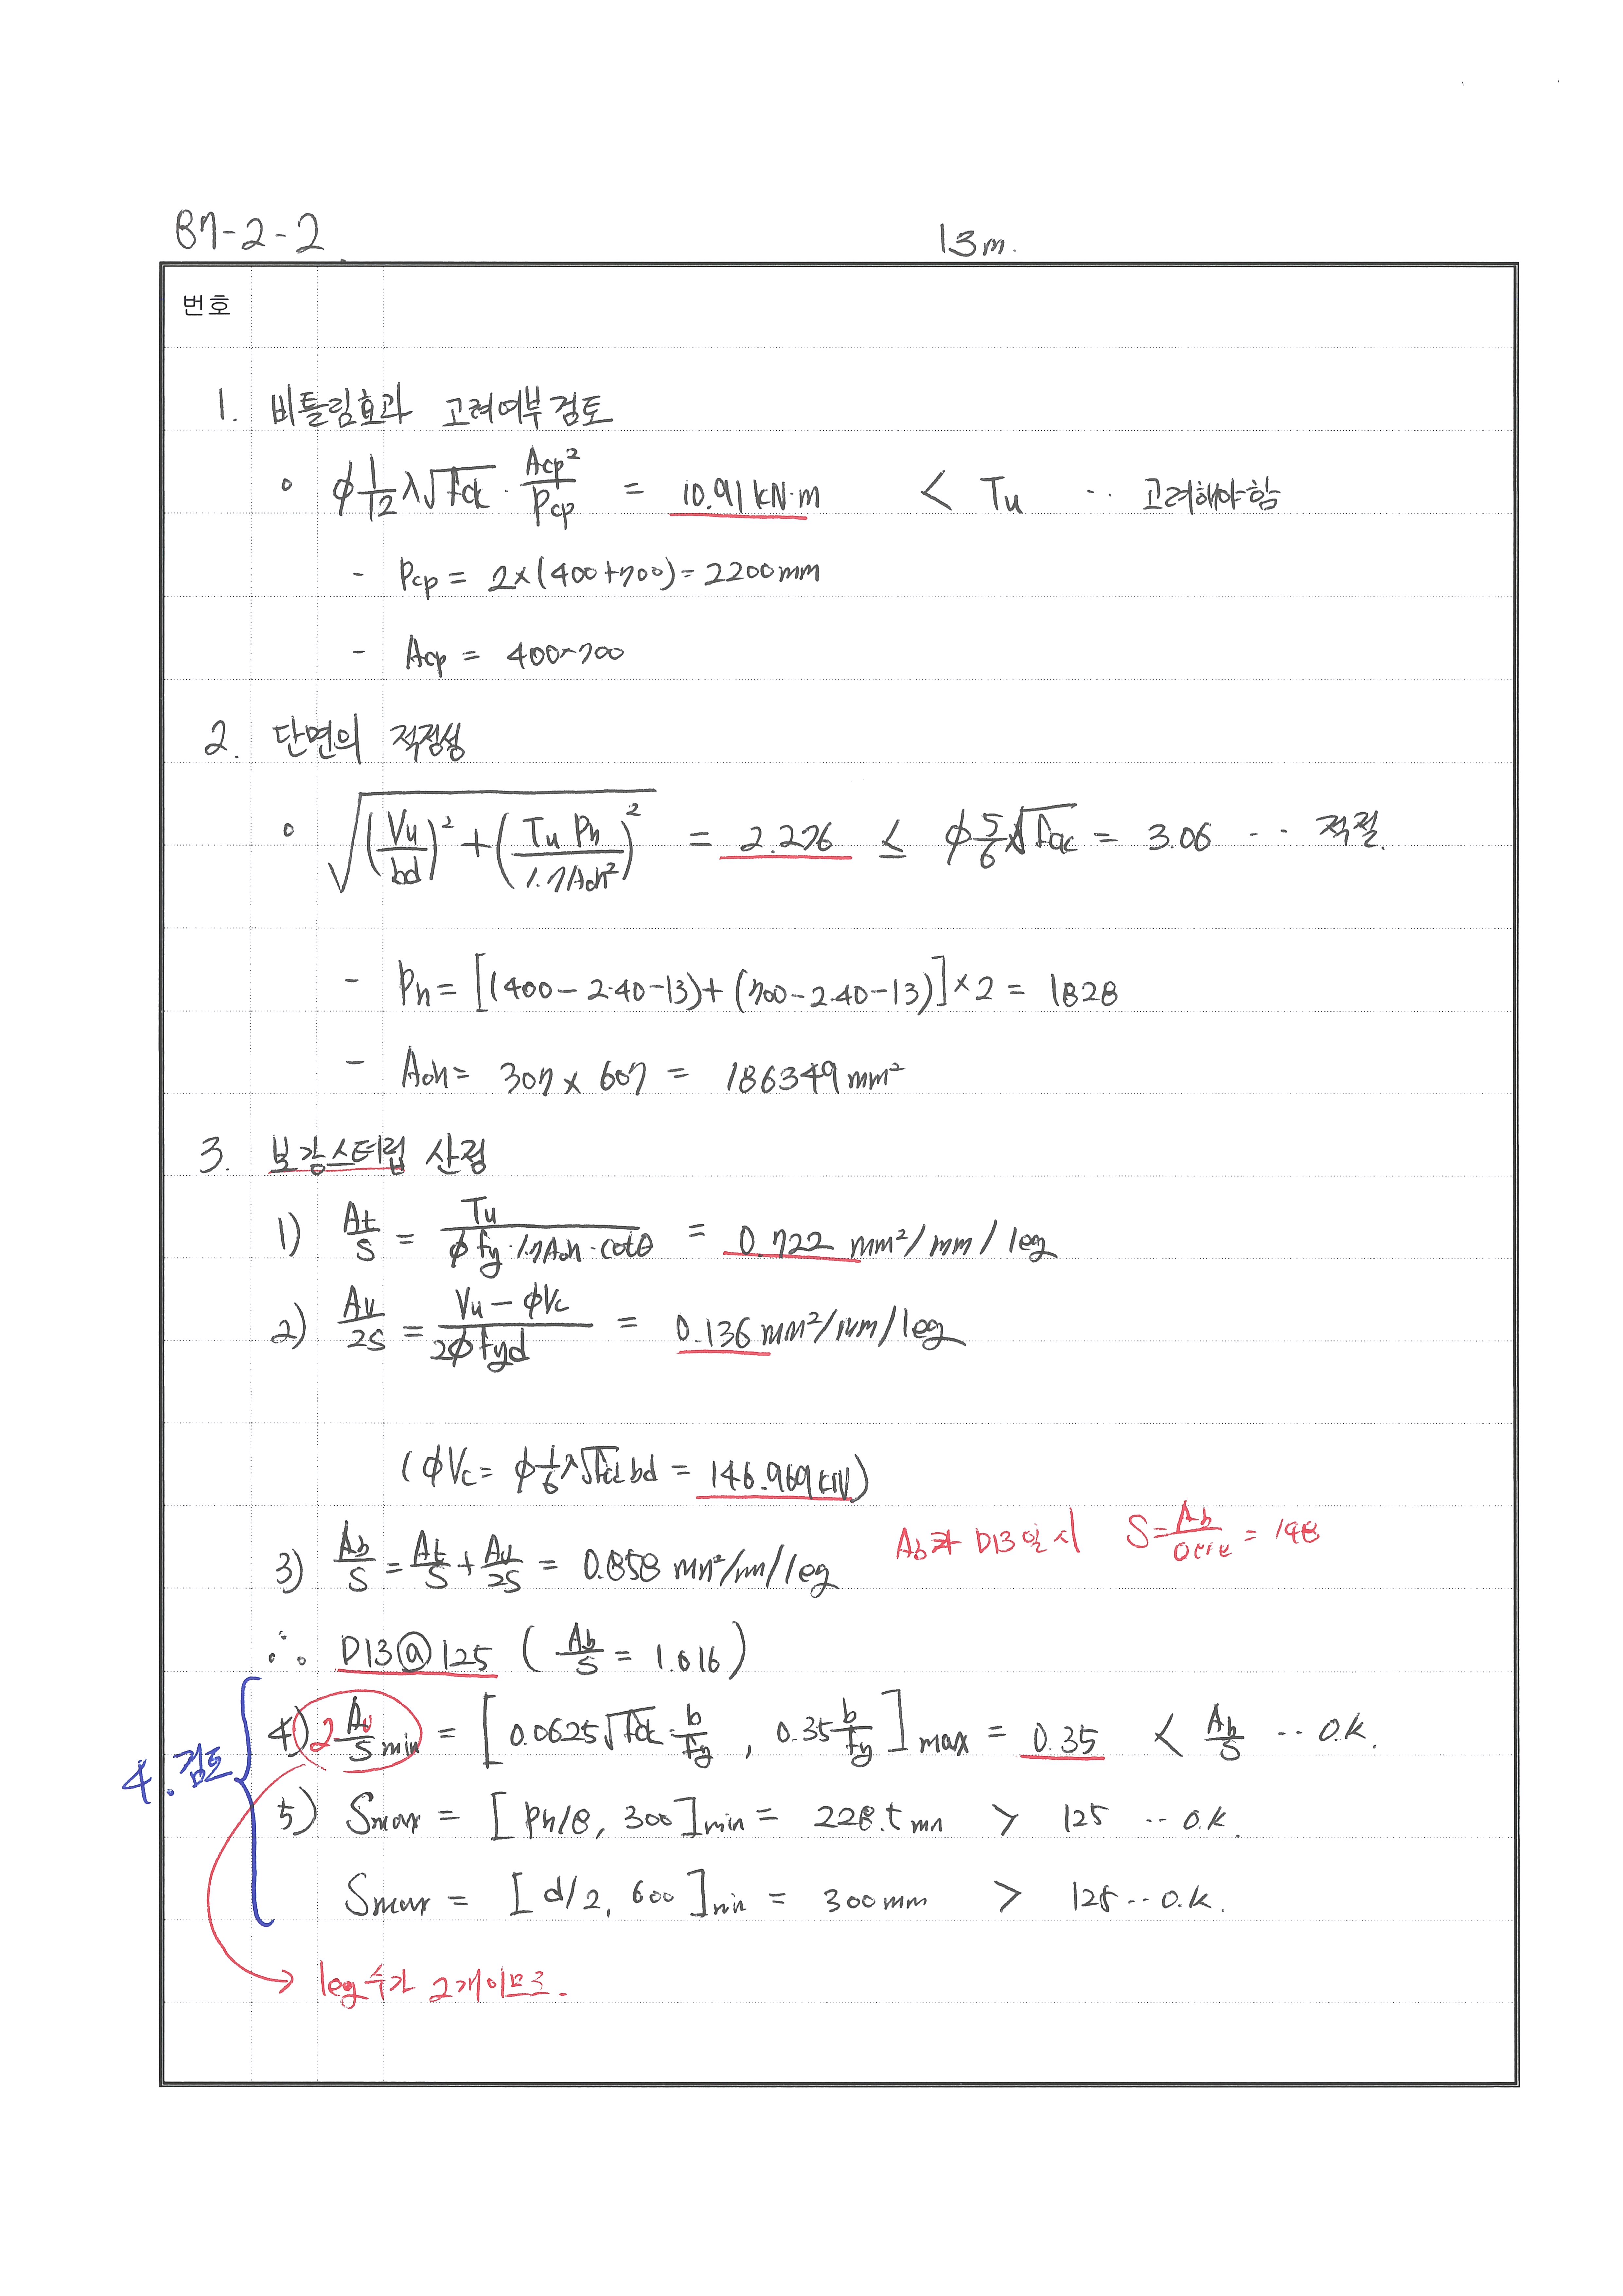 87-2-2
13m.
번호
1. 비틀림효과 고려여부검토
∘ ϕ 1/12 λ√fck · Acp²/Pcp = 10.91 kN·m < Tu ·· 고려해야함
- Pcp = 2×(400+700) = 2200mm
- Acp = 400×700
2. 단면의 적정성
∘ √((Vu/bd)² + (Tu Ph/1.7Aoh²)²) = 2.276 ≤ ϕ 5/6 λ√fck = 3.06 ·· 적절.
- Ph = [(400-2·40-13)+(700-2·40-13)]×2 = 1828
- Aoh = 307 × 607 = 186349 mm²
3. 보강스터럽 산정
1) At/S = Tu/(ϕ fy·1.7Aoh·cotθ) = 0.722 mm²/mm/leg
2) Av/2S = (Vu - ϕVc)/(2ϕfyd) = 0.136 mm²/mm/leg
(ϕVc = ϕ 1/6 λ√fck bd = 146.969 kN)
3) Ab/S = At/S + Av/2S = 0.858 mm²/mm/leg
D13일시 S = Ab/ = 148
∴ D13@125 (Ab/S = 1.016)
4. 검토
4) 2 Av/S min = [0.0625√fck · b/fy, 0.35 b/fy]max = 0.35 < Ab/S ·· O.K.
5) Smax = [Ph/8, 300]min = 228.5 mm > 125 ·· O.K.
Smax = [d/2, 600]min = 300mm > 125 ·· O.K.
→ leg수가 2개이므로.